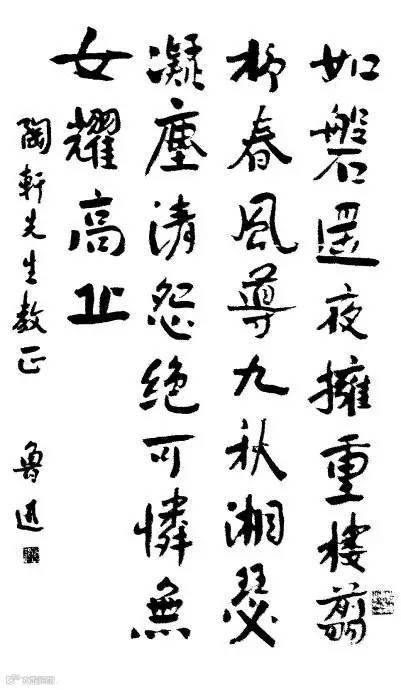 如磐遙夜擁重樓翦
柳春風導九秋湘瑟
凝塵清怨絶可憐無
女耀高丘
陶軒先生教正 魯迅